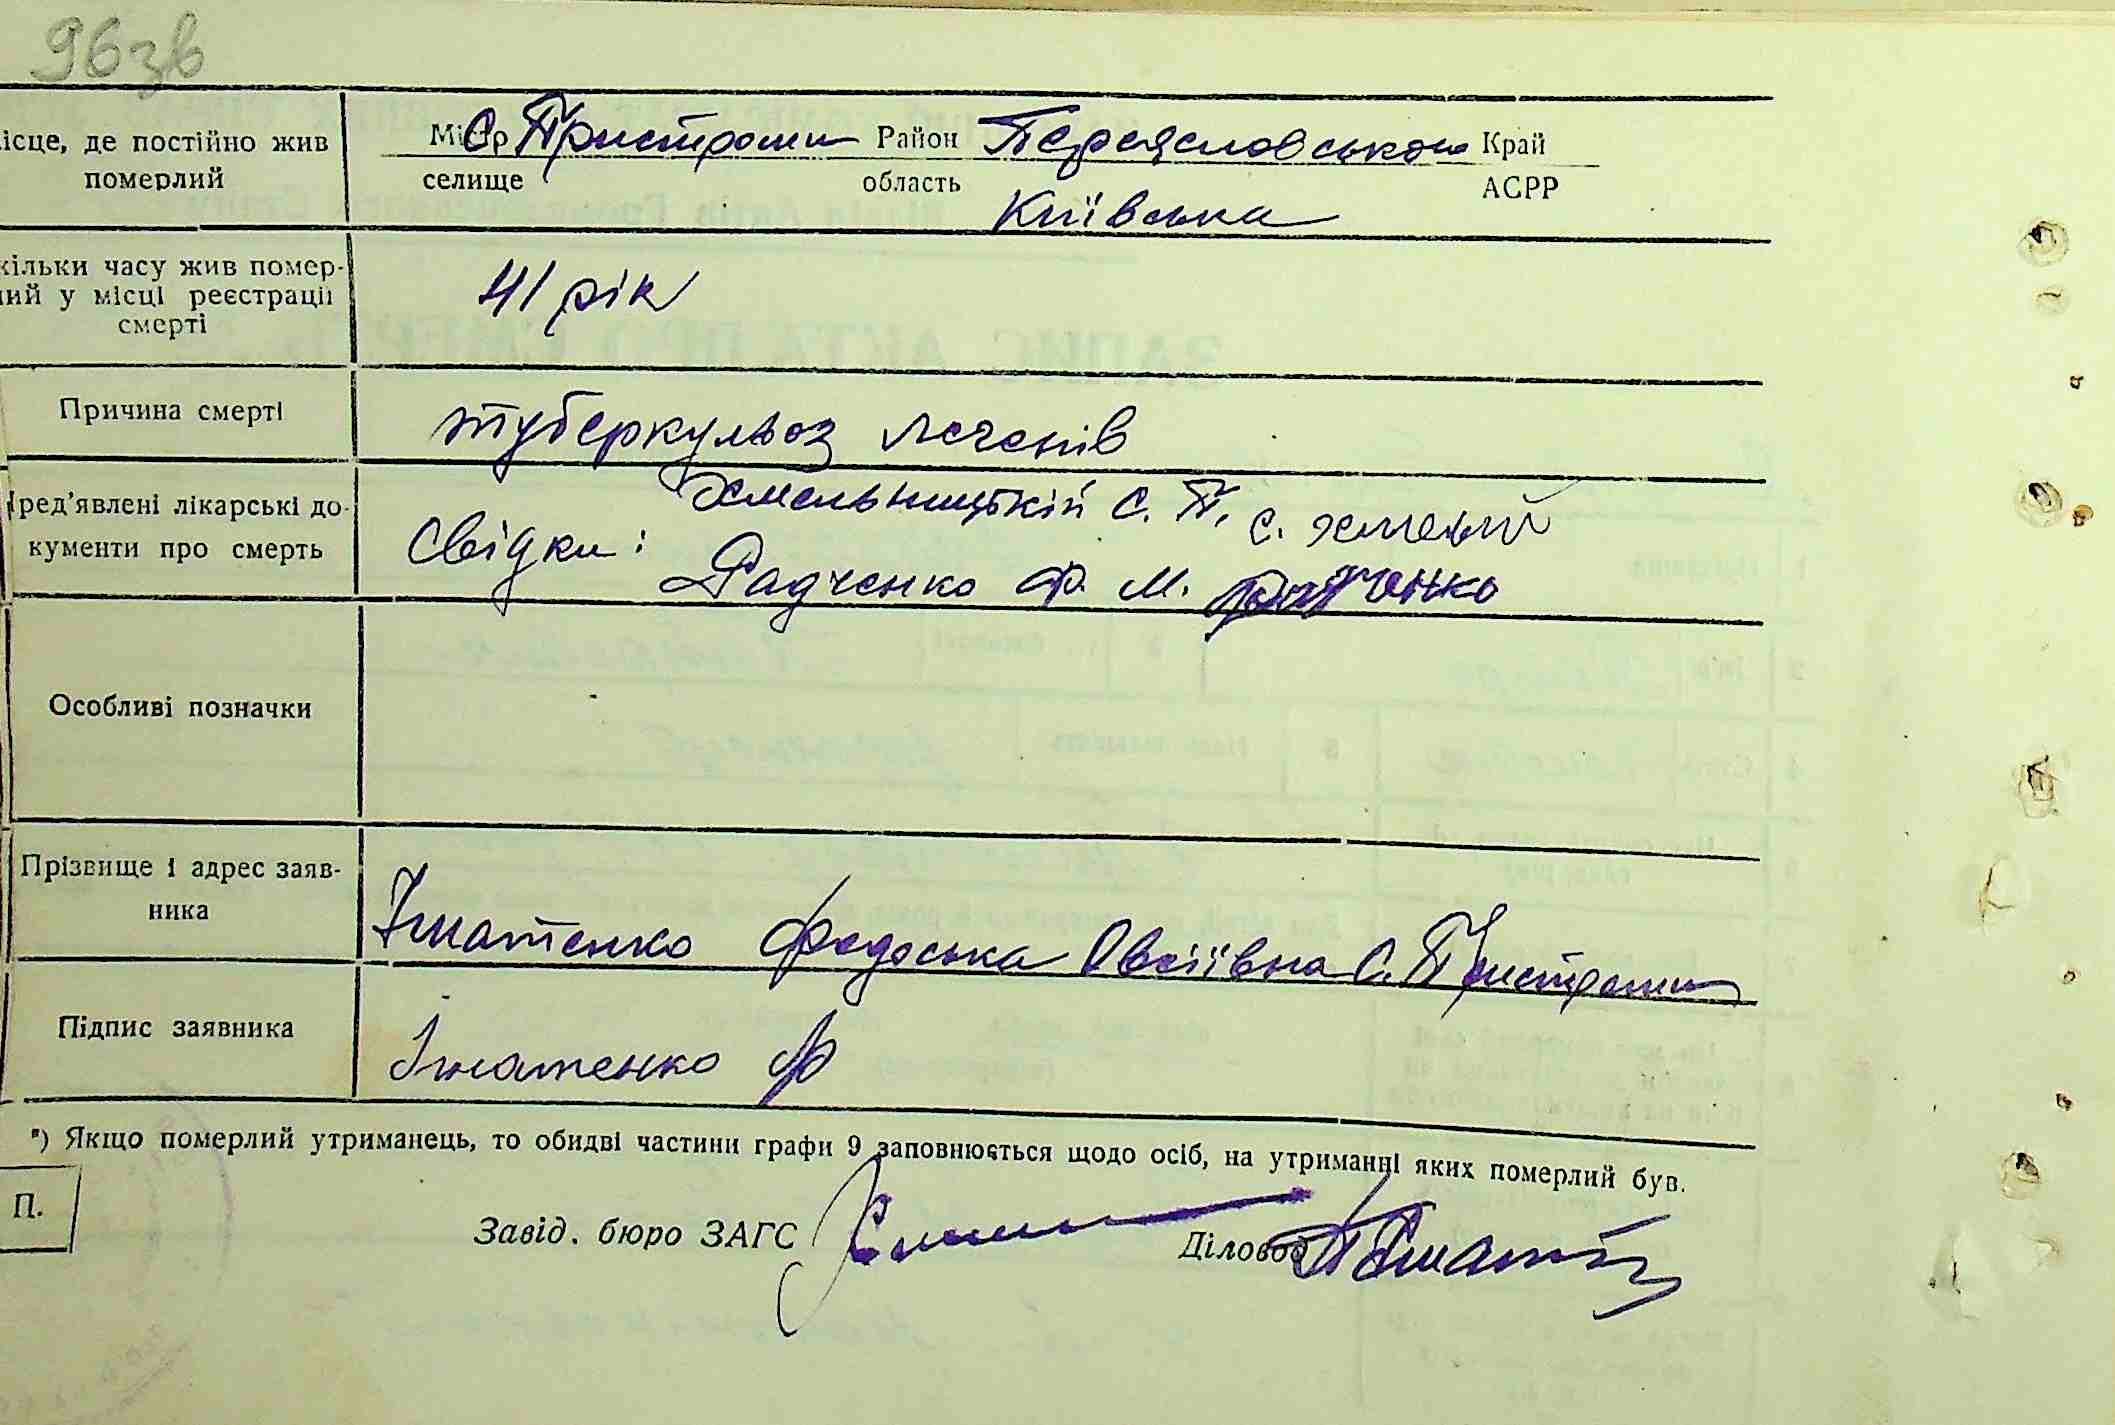 96зв
ісце, де постійно жив
померлий
Місто С. Пристроми Район Переяславського Край
селище область АСРР
Київська
кільки часу жив помер-
ний у місці реєстрації
смерті
41 рік
Причина смерті
туберкульоз легенів
Пред'явлені лікарські до-
кументи про смерть
Свідки:
Хмельницький С. П. С. Хмельни
Радченко Ф. М. Радченко
Особливі позначки
Прізвище і адрес заяв-
ника
Ігнатенко Федоська Овсіївна С. Пристроми
Підпис заявника
Ігнатенко Ф
*) Якщо померлий утриманець, то обидві частини графи 9 заповнюється щодо осіб, на утриманні яких померлий був.
П.
Завід. бюро ЗАГС
Діловод